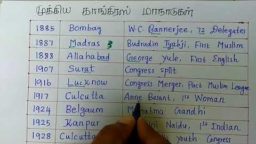 முக்கிய காங்கிரஸ் மாநாடுகள்
1885 Bombay W C Bannerjee, 72 Delegates
1887 Madras 3 Budrudin Tyabji, First Muslim
1888 Allahabad George Yule, First English
1907 Surat Congress Split
1916 Lucknow Congress Merger, Muslim League
1917 Culcutta Anne Besant, 1st Woman
1924 Belgaum Gandhi
1925 Kanpur Naidu, 1st Indian
1928 Culcutta Youth Congress